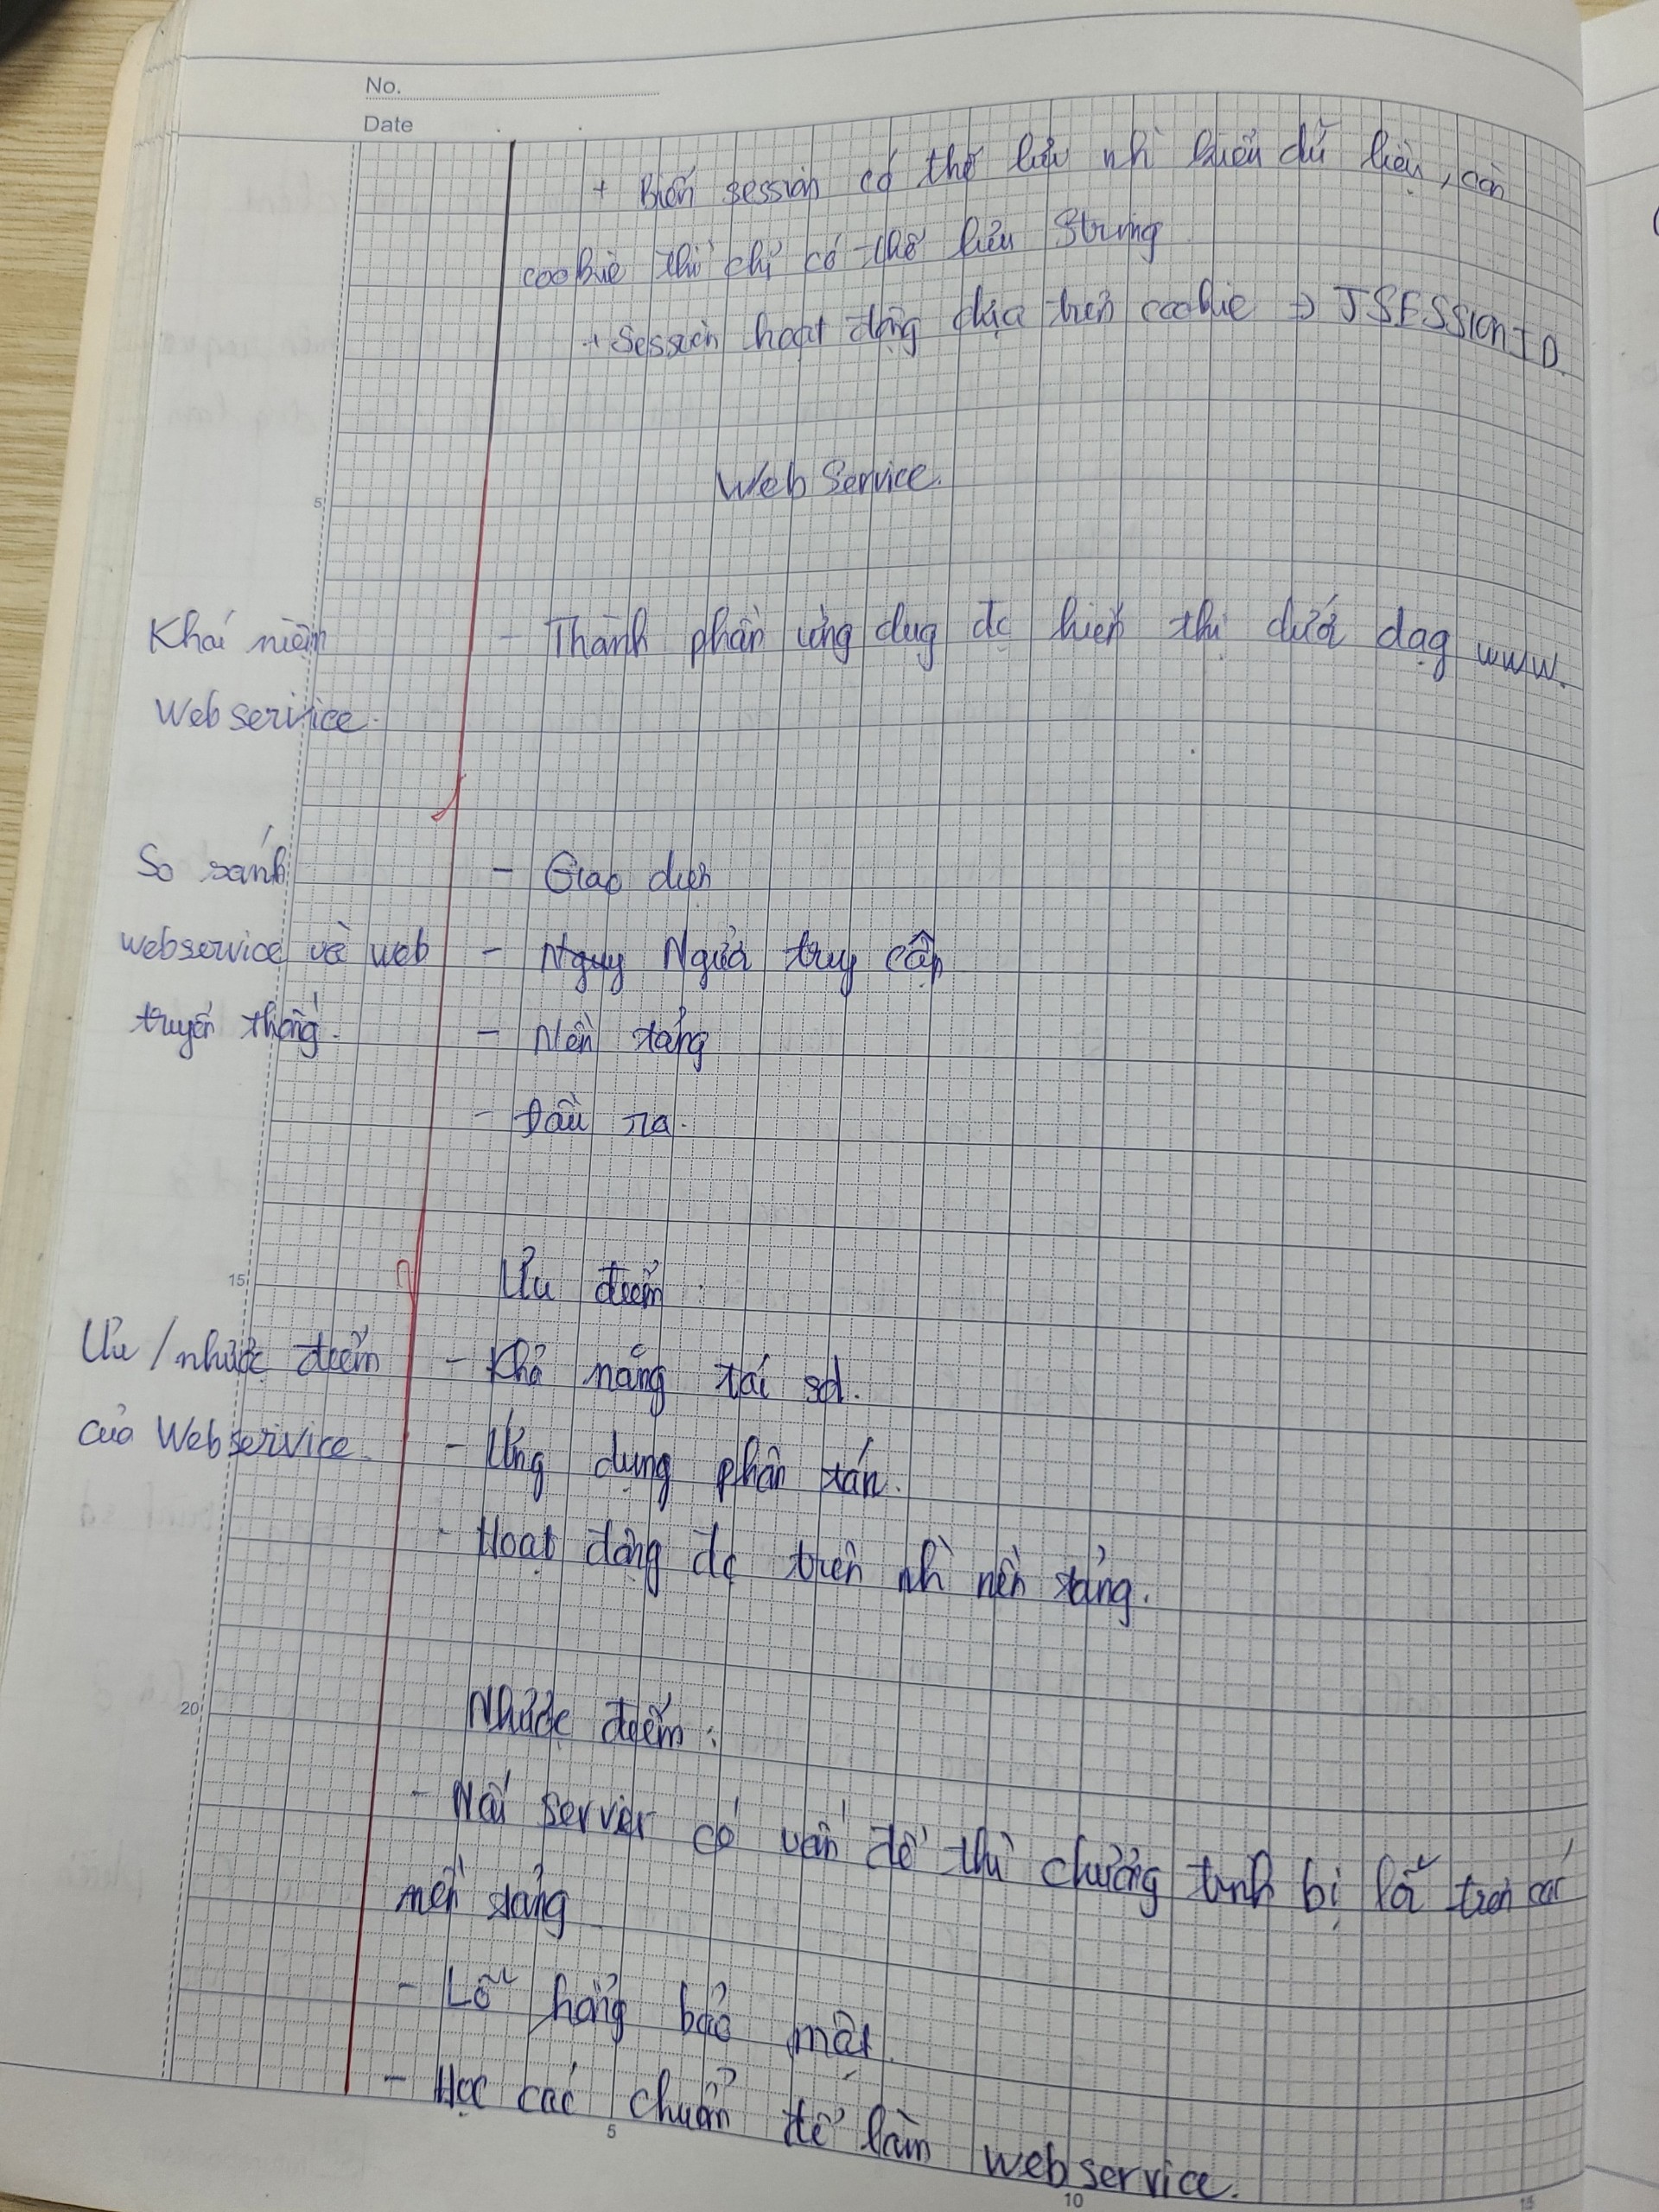 No.
Date
+ Biến session có thể lưu nhì kiểu dữ liệu, còn
cookie thì chỉ có thể lưu String
+ Session hoạt động dựa trên cookie => JSESSIONID.
Web Service.
5
Khái niệm
Web service.
- Thành phần ứng dụg đc hiển thị dưới dạg www.
So sánh
webservice và web
truyền thống.
- Giao diện
- Nguy Người truy cập
- Nền tảng
- Đầu ra.
15
Ưu / nhược điểm
của Web service.
Ưu điểm :
- Khả năng tái sd.
- Ứng dụng phân tán.
- Hoạt động đc trên nhì nền tảng.
20
Nhược điểm :
- Nếu server có vấn đề thì chương trình bị lỗi trên các
nền tảng
- Lỗ hổng bảo mật.
- Học các chuẩn để làm web service.
5
10
15